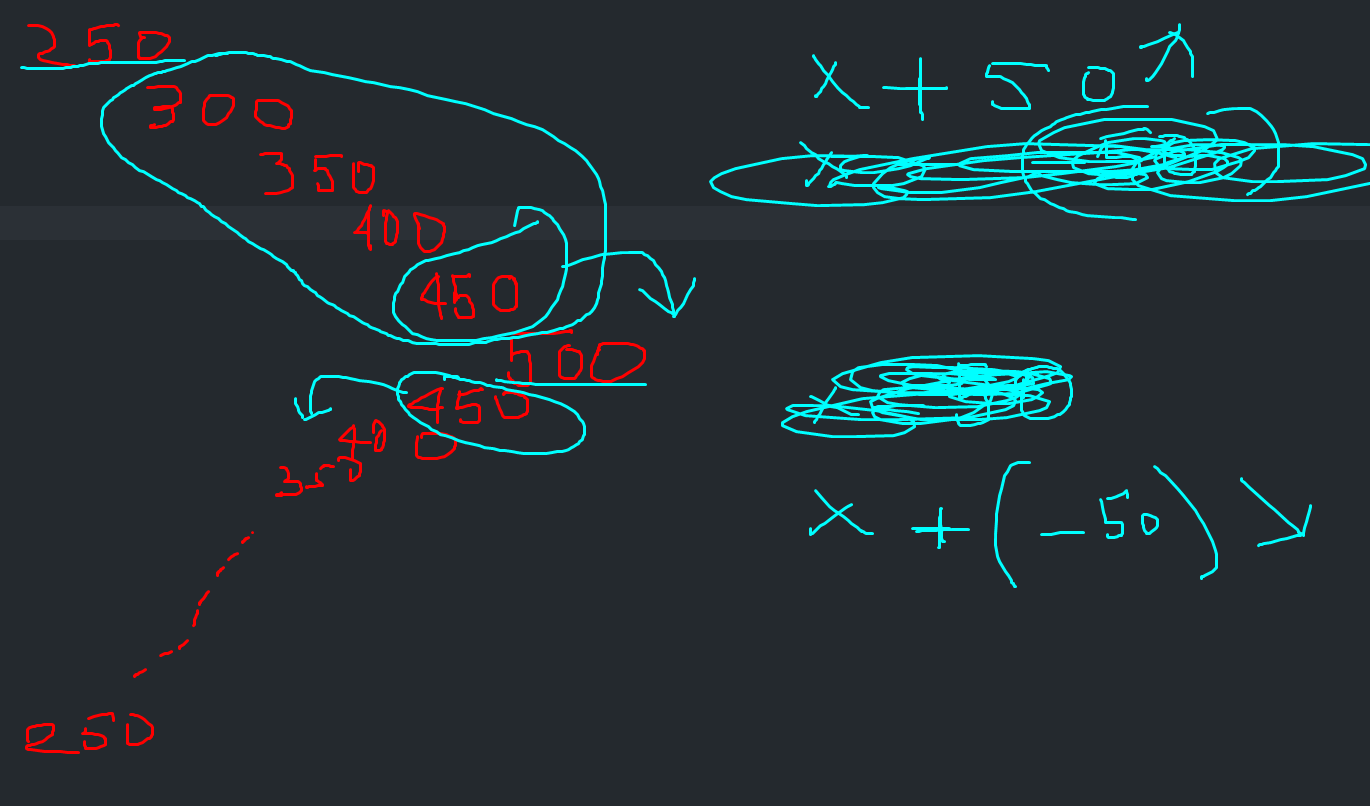 250
300
350
400
450
500
450
400
350
250
x + 50
x + (-50)